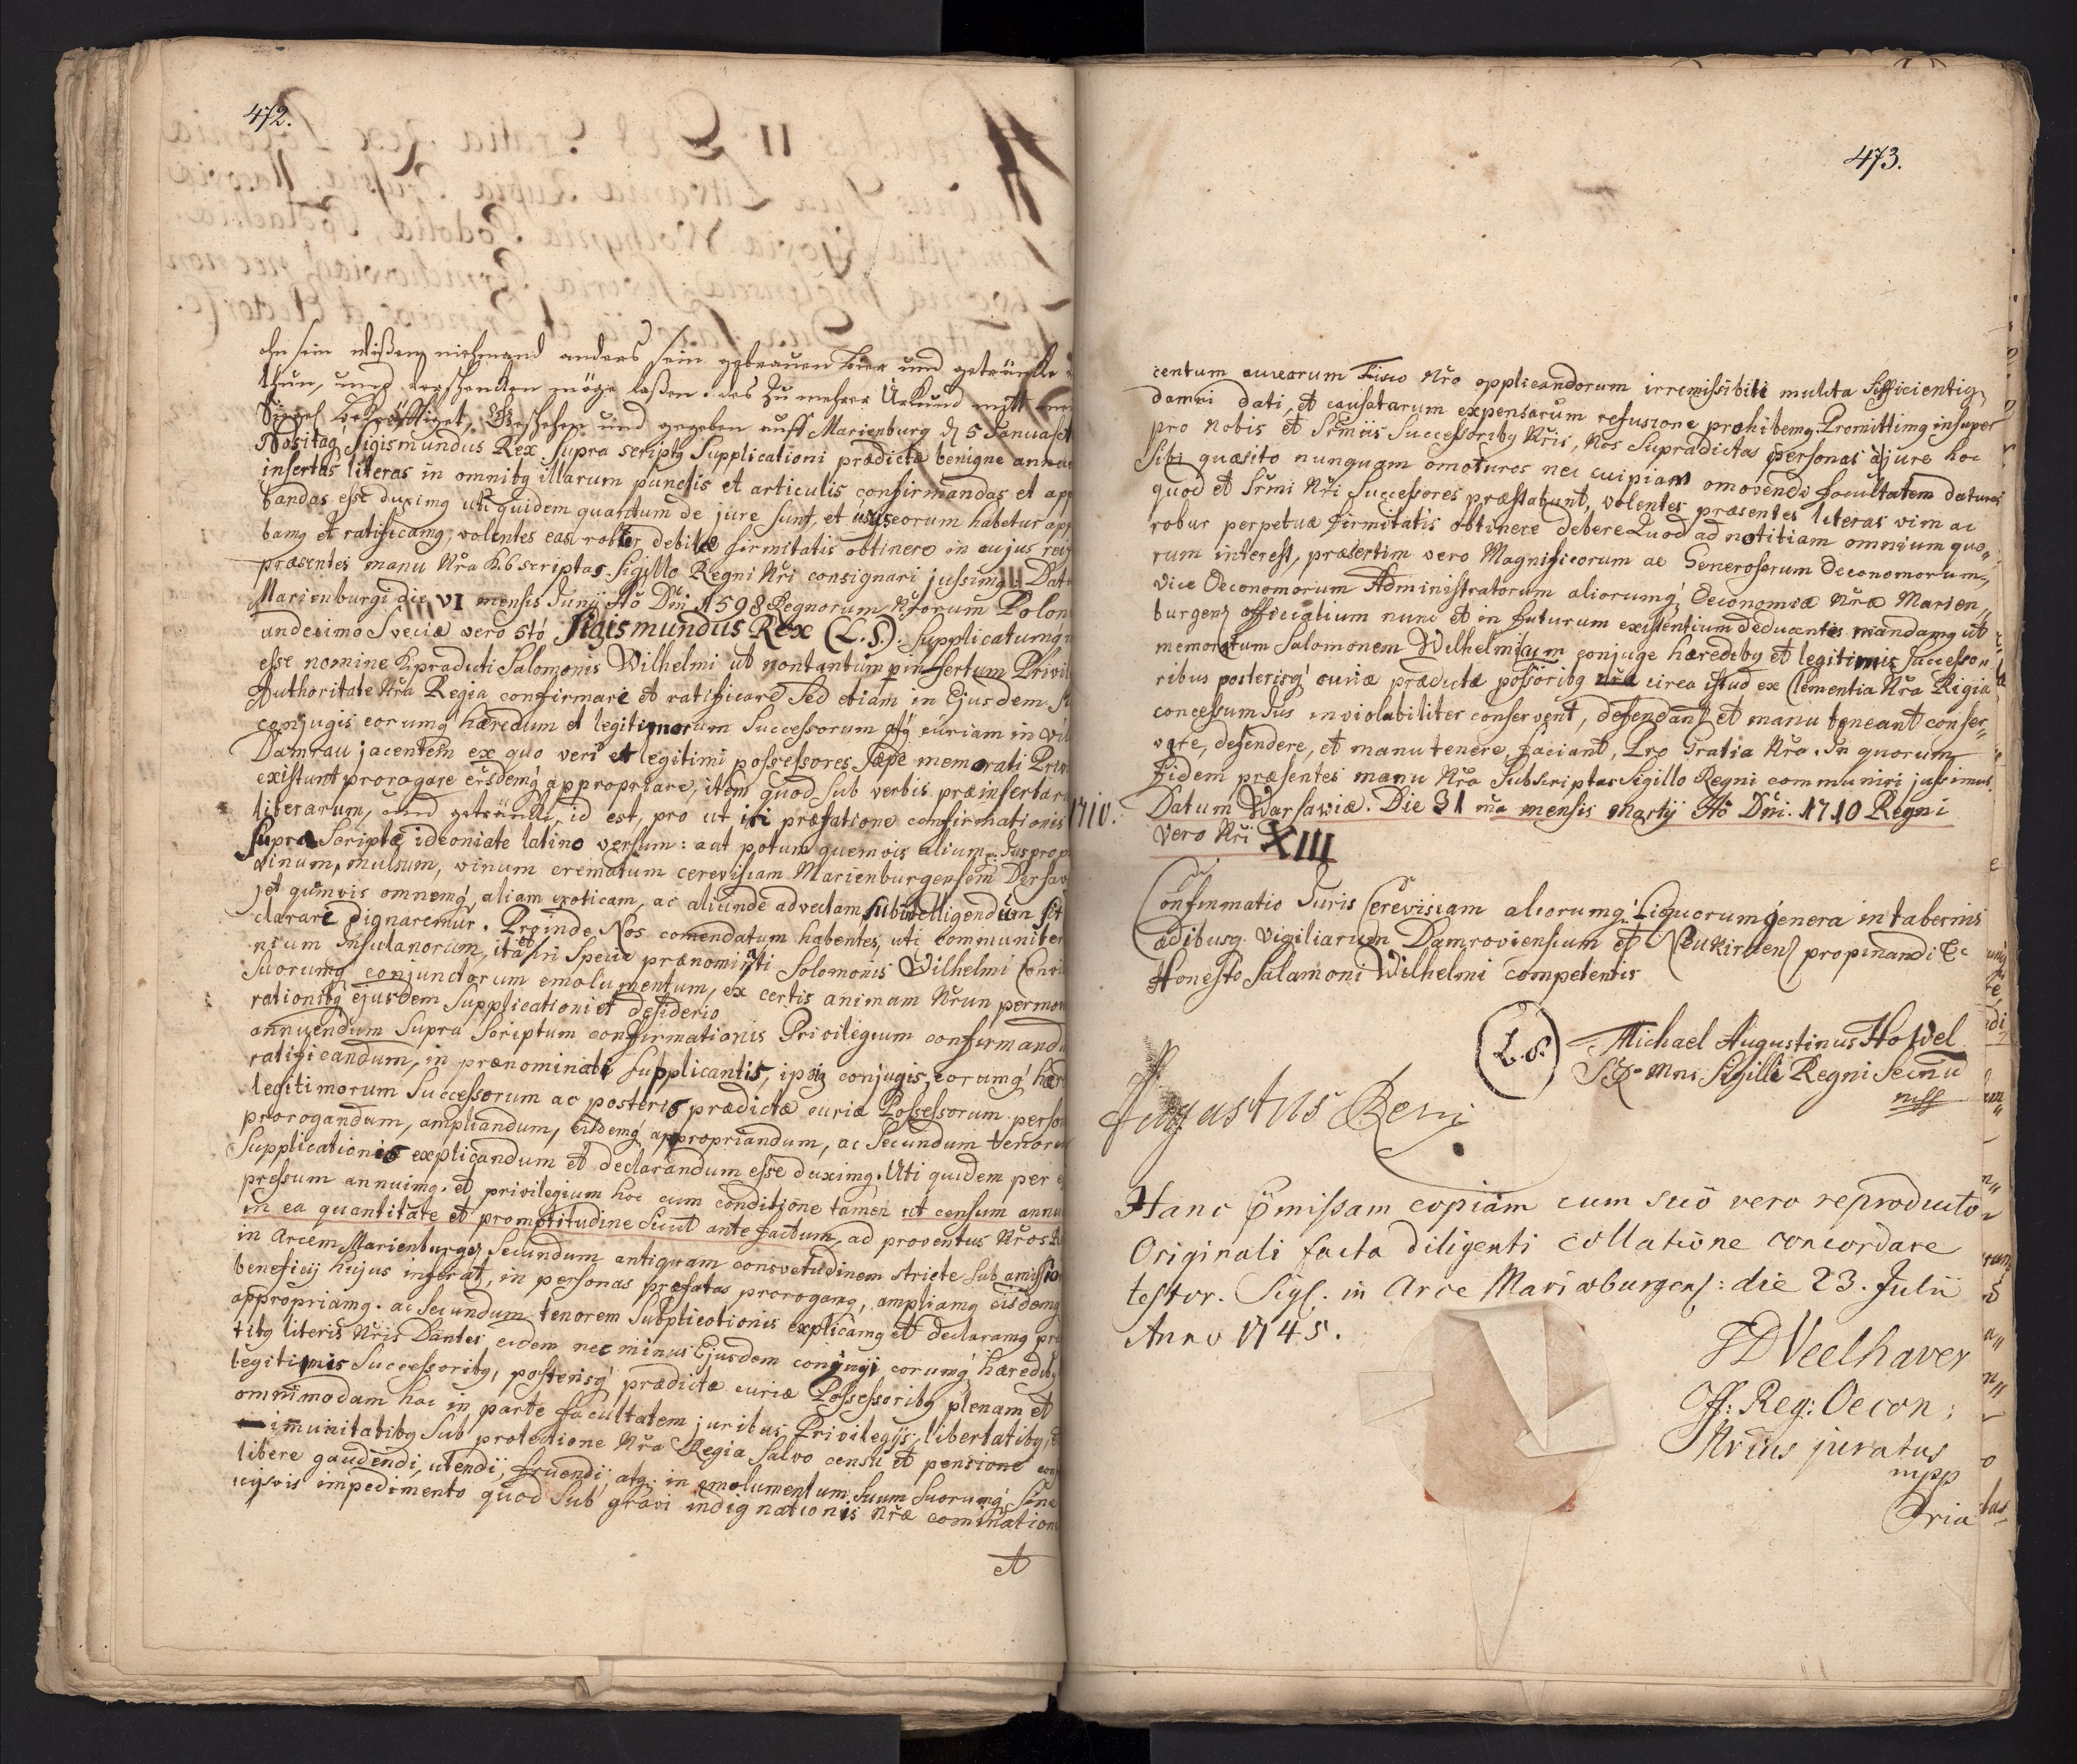 472.
ohn sein wißen niehmand anders sein gebrauen bier und geträncke
thun, und verschencken möge laßen. des zu mehrer Urkund mitt
Sigel bekräfftiget. Geschehen und gegeben auff Marienburg d 5 Januar
Nositaq Sigismundus Rex Supra scriptq Supplicationi prædictæ benigne annue
insertas literas in omnibq illarum punctis et articulis confirmandas et app
bandas esse duximq uti quidem quantum de jure sunt, et usus eorum habetur app
bamq et ratificamq, volentes eas robur debitæ firmitatis obtinere in cujus rei
præsentes manu Nr̃a subscriptas Sigillo Regni Nr̃i consignari jussimq. Dat
Marienburgi die VI mensis Junij Aõ Dñi 1598 Regnorum Nr̃orum Polon
undecimo Sveciæ vero 5tõ Sigismundus Rex (L.S). Supplicatumq
esse nomine supradicti Salomonis Wilhelmi ut non tantum p insertum Privil
Authoritate Nr̃a Regia confirmare et ratificare Sed etiam in Ejusdem
conjugis eorumq hæredum et legitimorum Successorum atq curiam in vil
Damrau jacentem ex quo veri et legitimi possessores Sæpe memorati Priv
existunt prorogare eisdemq appropriare, item quod sub verbis præinsertar
literarum, und geträncke, id est, pro ut in præfatione confirmationis
Supra Scriptæ ideoniate latino versum: aut potum quemvis alium, Jus prop
vinum, mulsum, vinum crematum cerevisiam Marienburgensem Dirsav
et quamvis omnemq aliam exoticam, ac aliunde advectam subintelligendum sit
clarare dignaremur. Proinde Nos comendatum habentes, uti communiter
nium Insulanorum, ita et in Specie prænominati Solomonis Wilhelmi
Suorumq conjunctorum emolumentum, ex certis animam Nr̃un permov
rationibq ejusdem Supplicationi et desiderio
annuendum Supra Scriptum confirmationis Privilegium confirmand
ratificandum, in prænominati supplicantis, ipsiq conjugis, eorumq hær
legitimorum Successorum ac posteris prædictæ curiæ Possessorum perso
prorogandum, ampliandum, eisdemq appropriandum, ac Secundum tenore
Supplicationis explicandum et declarandum esse duximq. Uti quidem per
pressum annuimq. et privilegium hoc cum conditione tamen ut censum annu
in ea quantitate et promptitudine Sicut ante factum, ad proventus Nr̃os
in Arcem Marienburgeñ Secundum antiquam consvetudinem stricte sub amissio
beneficij hujus inferat, in personas præfatas prorogamq, ampliamq eisdemq
appropriamq. ac Secundum tenorem Suplicationis explicamq et declaramq
tibq literis Nr̃is Dantes eidem nec minus Ejusdem conjugi eorumq hæredibq
legitimis Successoribq, posterisq prædictæ curiæ Possessoribq plenam et
omnimodam hac in parte facultatem juribus Privilegijs, libertatibq,
imunitatibq Sub protectione Nr̃a Regia Salvo censu et pensione
libere gaudendi, utendi, fruendi atq in emolumentum Suum Suorumq Sine
cujsvis impedimento quod Sub gravi indignationis Nr̃æ comination
et
473.
centum aureorum Fisco Nr̃o applicandorum irremissibili mulcta Sufficientiq
damni dati, et causatarum expensarum refusione prohibemq. Promittimq insuper
pro nobis et Sr̃miis Successoribq Nr̃is, Nos Supradictas personas à jure hoc
Sibi quæsito nunquam amoturos nec cuipiam amovendi facultatem daturos
quod et Sr̃mi Nr̃i Successores præstabunt, volentes præsentes literas vim ac
robur perpetuæ firmitatis obtinere debere Quod ad notitiam omnium quo„
rum interest, præsertim vero Magnificorum ac Generosorum Oeconomorum,
Vice Oeconomorum Administratorum aliorumq Oeconomiæ Nr̃æ Marien„
burgens officialium nunc et in futurum existentium deducentes mandamq ut
memoratum Salomonem Wilhelmi cum conjuge hæredibq et legitimis Successo„
ribus posterisq curiæ prædictæ possõribq circa istud ex Clementia Nr̃a Regia
concessum Jus inviolabiliter conservent, defendant et manu teneant conser„
vare, defendere, et manu tenere, faciant, Pro Gratia Nr̃a. In quorum
Fidem præsentes manu Nr̃a Subscriptas Sigillo Regni communiri jussimus.
1710. Datum Warsawiæ. Die 31 ma mensis Martij Aõ Dñi. 1710 Regni
Vero Nr̃i XIII
Confirmatio Juris Cerevisiam aliorumq Liquorum genera in tabernis
ædibusq. Vigiliarum Damroviensium et Neukirchens propinandi &c
Honesto Salamoni Wilhelmi competentis
(L.S.) Michael Augustinus Howel
S. R. Mtis Sigilli Regni Secriũ
mpp
Augustus Rex
Hanc Emissam copiam cum suo vero reproducto
Originali facta diligenti collatione concordare
testor. Sigl. in Arce Mariæburgens: die 23. Julii
Anno 1745.
JD Veelhaver
Off: Reg: Oecon:
Nrius juratus
mpp
Pria